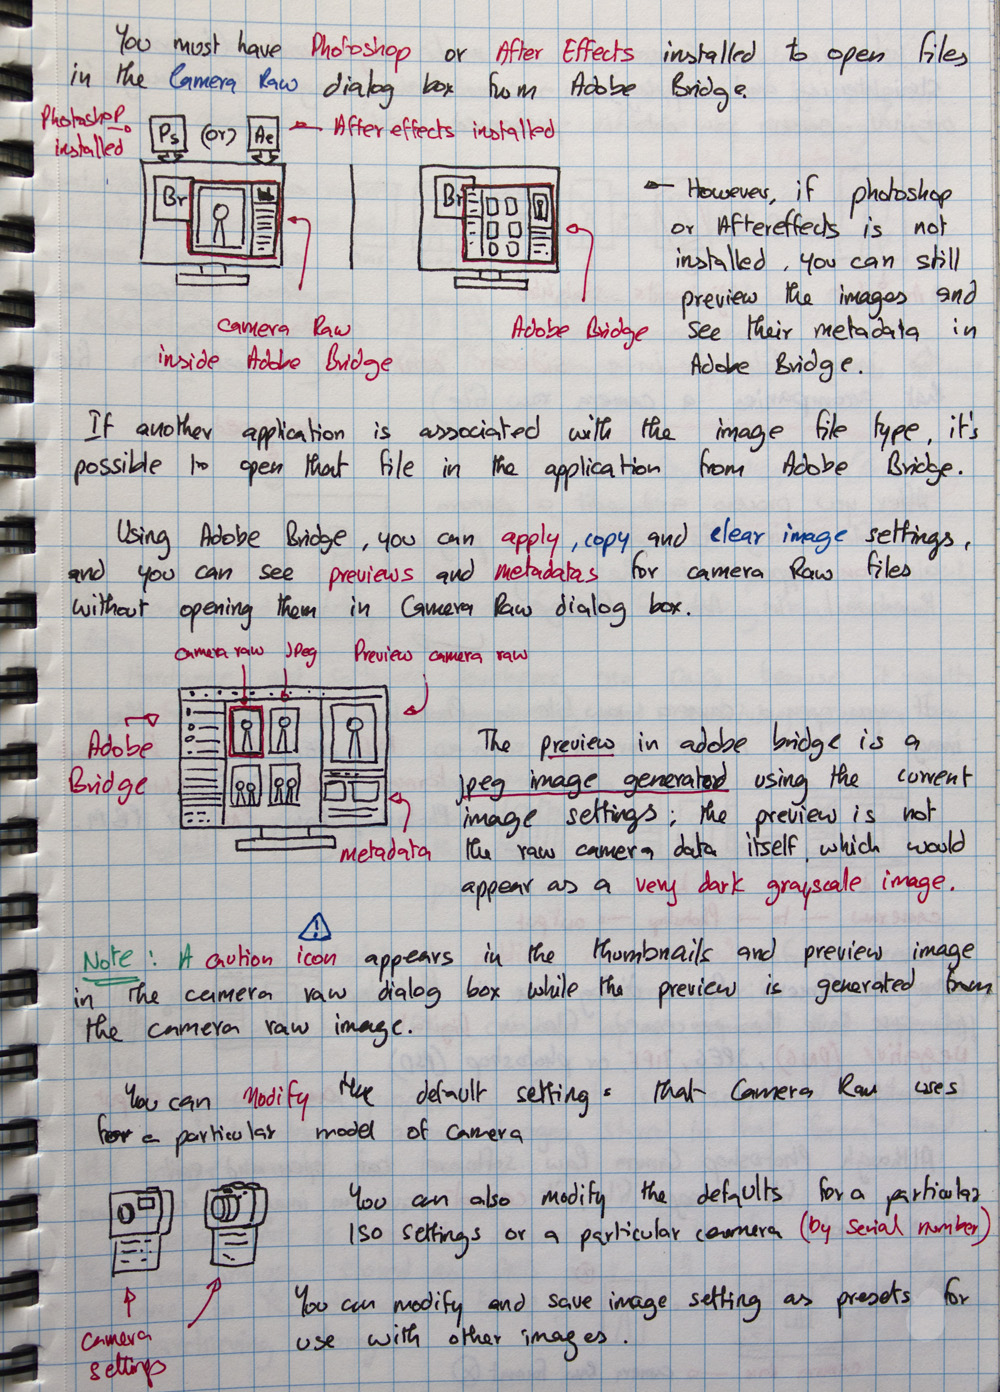 You must have Photoshop or After Effects installed to open files
in the Camera Raw dialog box from Adobe Bridge.
Photoshop
installed
Ps (or) Ae
After effects installed
Br
Br
camera Raw
inside Adobe Bridge
Adobe Bridge
However, if photoshop
or Aftereffects is not
installed, you can still
preview the images and
see their metadata in
Adobe Bridge.
If another application is associated with the image file type, it's
possible to open that file in the application from Adobe Bridge.
Using Adobe Bridge, you can apply, copy and clear image settings,
and you can see previews and metadatas for camera Raw files
without opening them in Camera Raw dialog box.
camera raw Jpeg Preview camera raw
Adobe
Bridge
metadata
The preview in adobe bridge is a
jpeg image generated using the current
image settings; the preview is not
the raw camera data itself, which would
appear as a very dark grayscale image.
Note: A caution icon appears in the thumbnails and preview image
in the camera raw dialog box while the preview is generated from
the camera raw image.
You can Modify the default settings that Camera Raw uses
for a particular model of camera
You can also modify the defaults for a particular
ISO settings or a particular camera (by serial number)
camera
settings
You can modify and save image setting as presets for
use with other images.